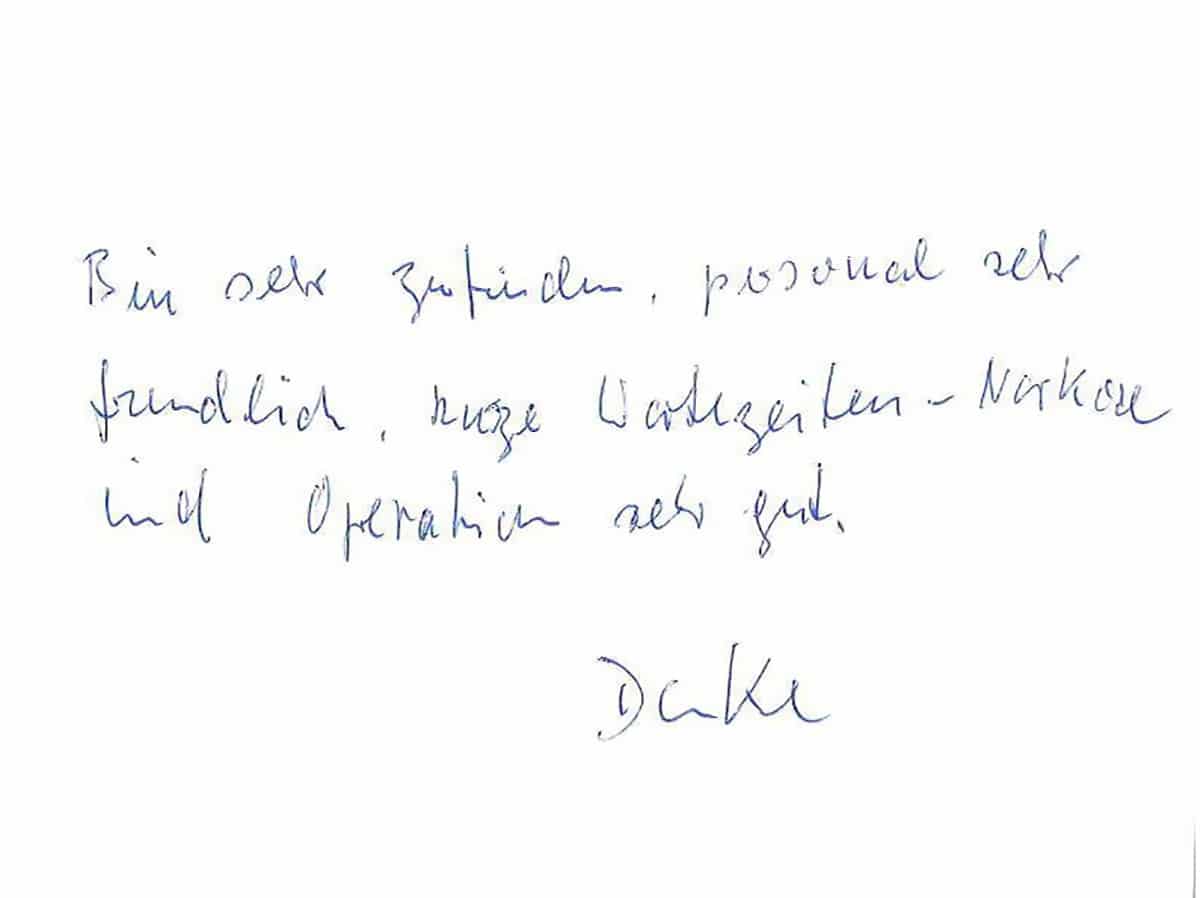 Bin sehr zufrieden, personal sehr
freundlich, kurze Wartezeiten - Narkose
und Operation sehr gut.
Danke